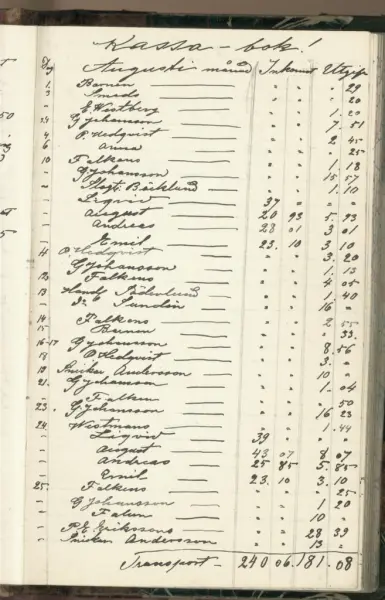 Kassa-bok!
Dag Augusti månad Inkomst Utgift
1. Barnen " " " 29
3 Smeds " " " 20
" E Westberg " " 1. 20
3.4 G Johansson " " 7. 51
4 P. Hedqvist " " 2 45
6 Anna " " " 25
10 Falkens " " 1. 18
" G Johansson " " 15 57
" Slagt. Bäcklund " " 1. 10
" Liqvid 37 " " "
" August 20 93 5. 93
" Andreas 28 01 3 01
" Emil 23. 10 3 10
11 P. Hedqvist " " 3. 20
" G Johansson " " 1. 13
12 Falkens " " 4 05
13 Handl. Söderlund " " 1. 40
" Do Sundin " " 16 "
14 Falkens " " 2 55
15 " " " 33.
16-17 G Johansson " " 8. 56
18 P Hedqvist " " 3. "
19 Snickar Andersson " " 10 "
21. G Johansson " " 1. 04
" Falun " " " 50
23. G. Johansson " " 16 23
24. Westmans " " 1. 44
" Liqvid 39 " " "
" August 43 07 8 07
" Andreas 25 85 5. 85
" Emil 23. 10 3. 10
25. Falkens " " " 25
" G Johansson " " 1 20
" Falun " " 10 "
" P. E. Erikssons " " 28 39
" Snickar Andersson " " 13 "
Transport - 240 06. 181. 08